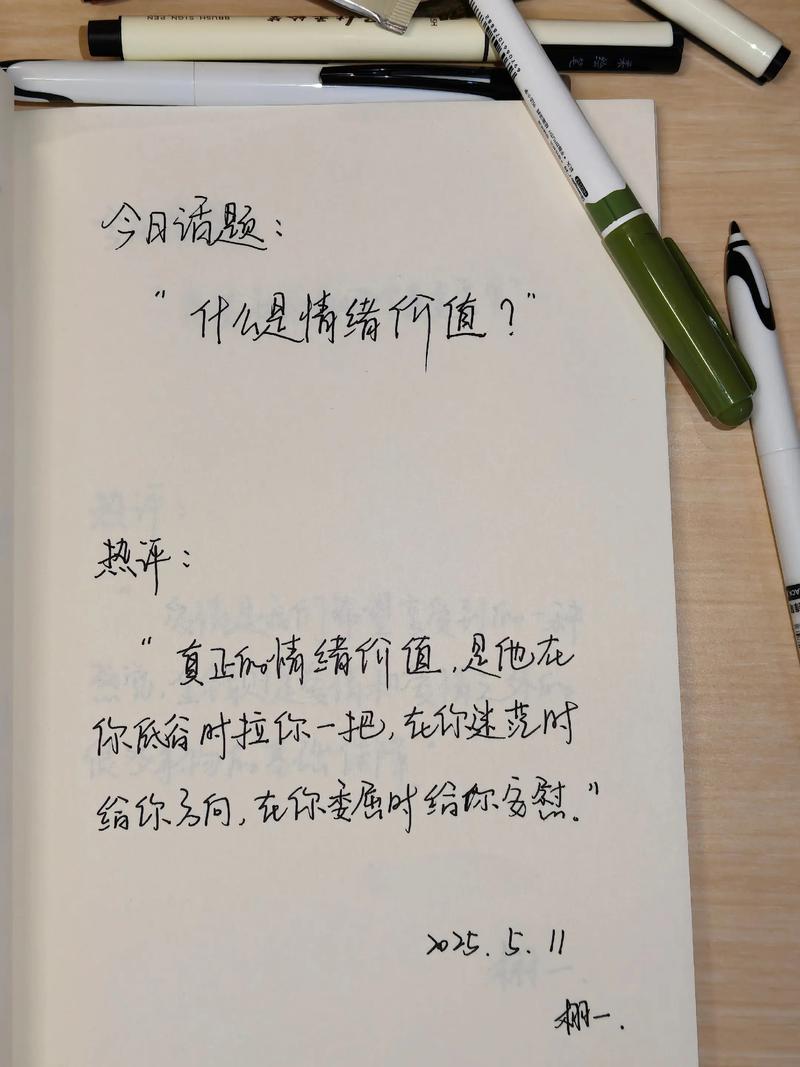 BRUSH SIGN PEN
柔绘笔
今日话题：
“什么是情绪价值？”
热评：
“真正的情绪价值，是他在
你低谷时拉你一把，在你迷茫时
给你方向，在你委屈时给你安慰。”
2025.5.11
栩一.